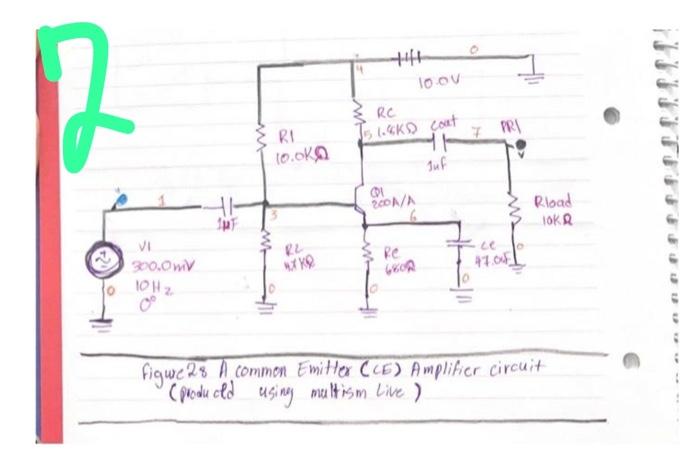 2
0
4
10.0V
RC
5 1.8KΩ Cout 7 PR1
R1
10.0KΩ
1uf
Q1
200A/A
Rload
10KΩ
1
3
6
1µF
V1
300.0mV
10Hz
0°
0
R2
4.7KΩ
0
Re
680Ω
0
Ce
47.0uF
0
0
figure 2: A common Emitter (CE) Amplifier circuit
(producted using multism Live)